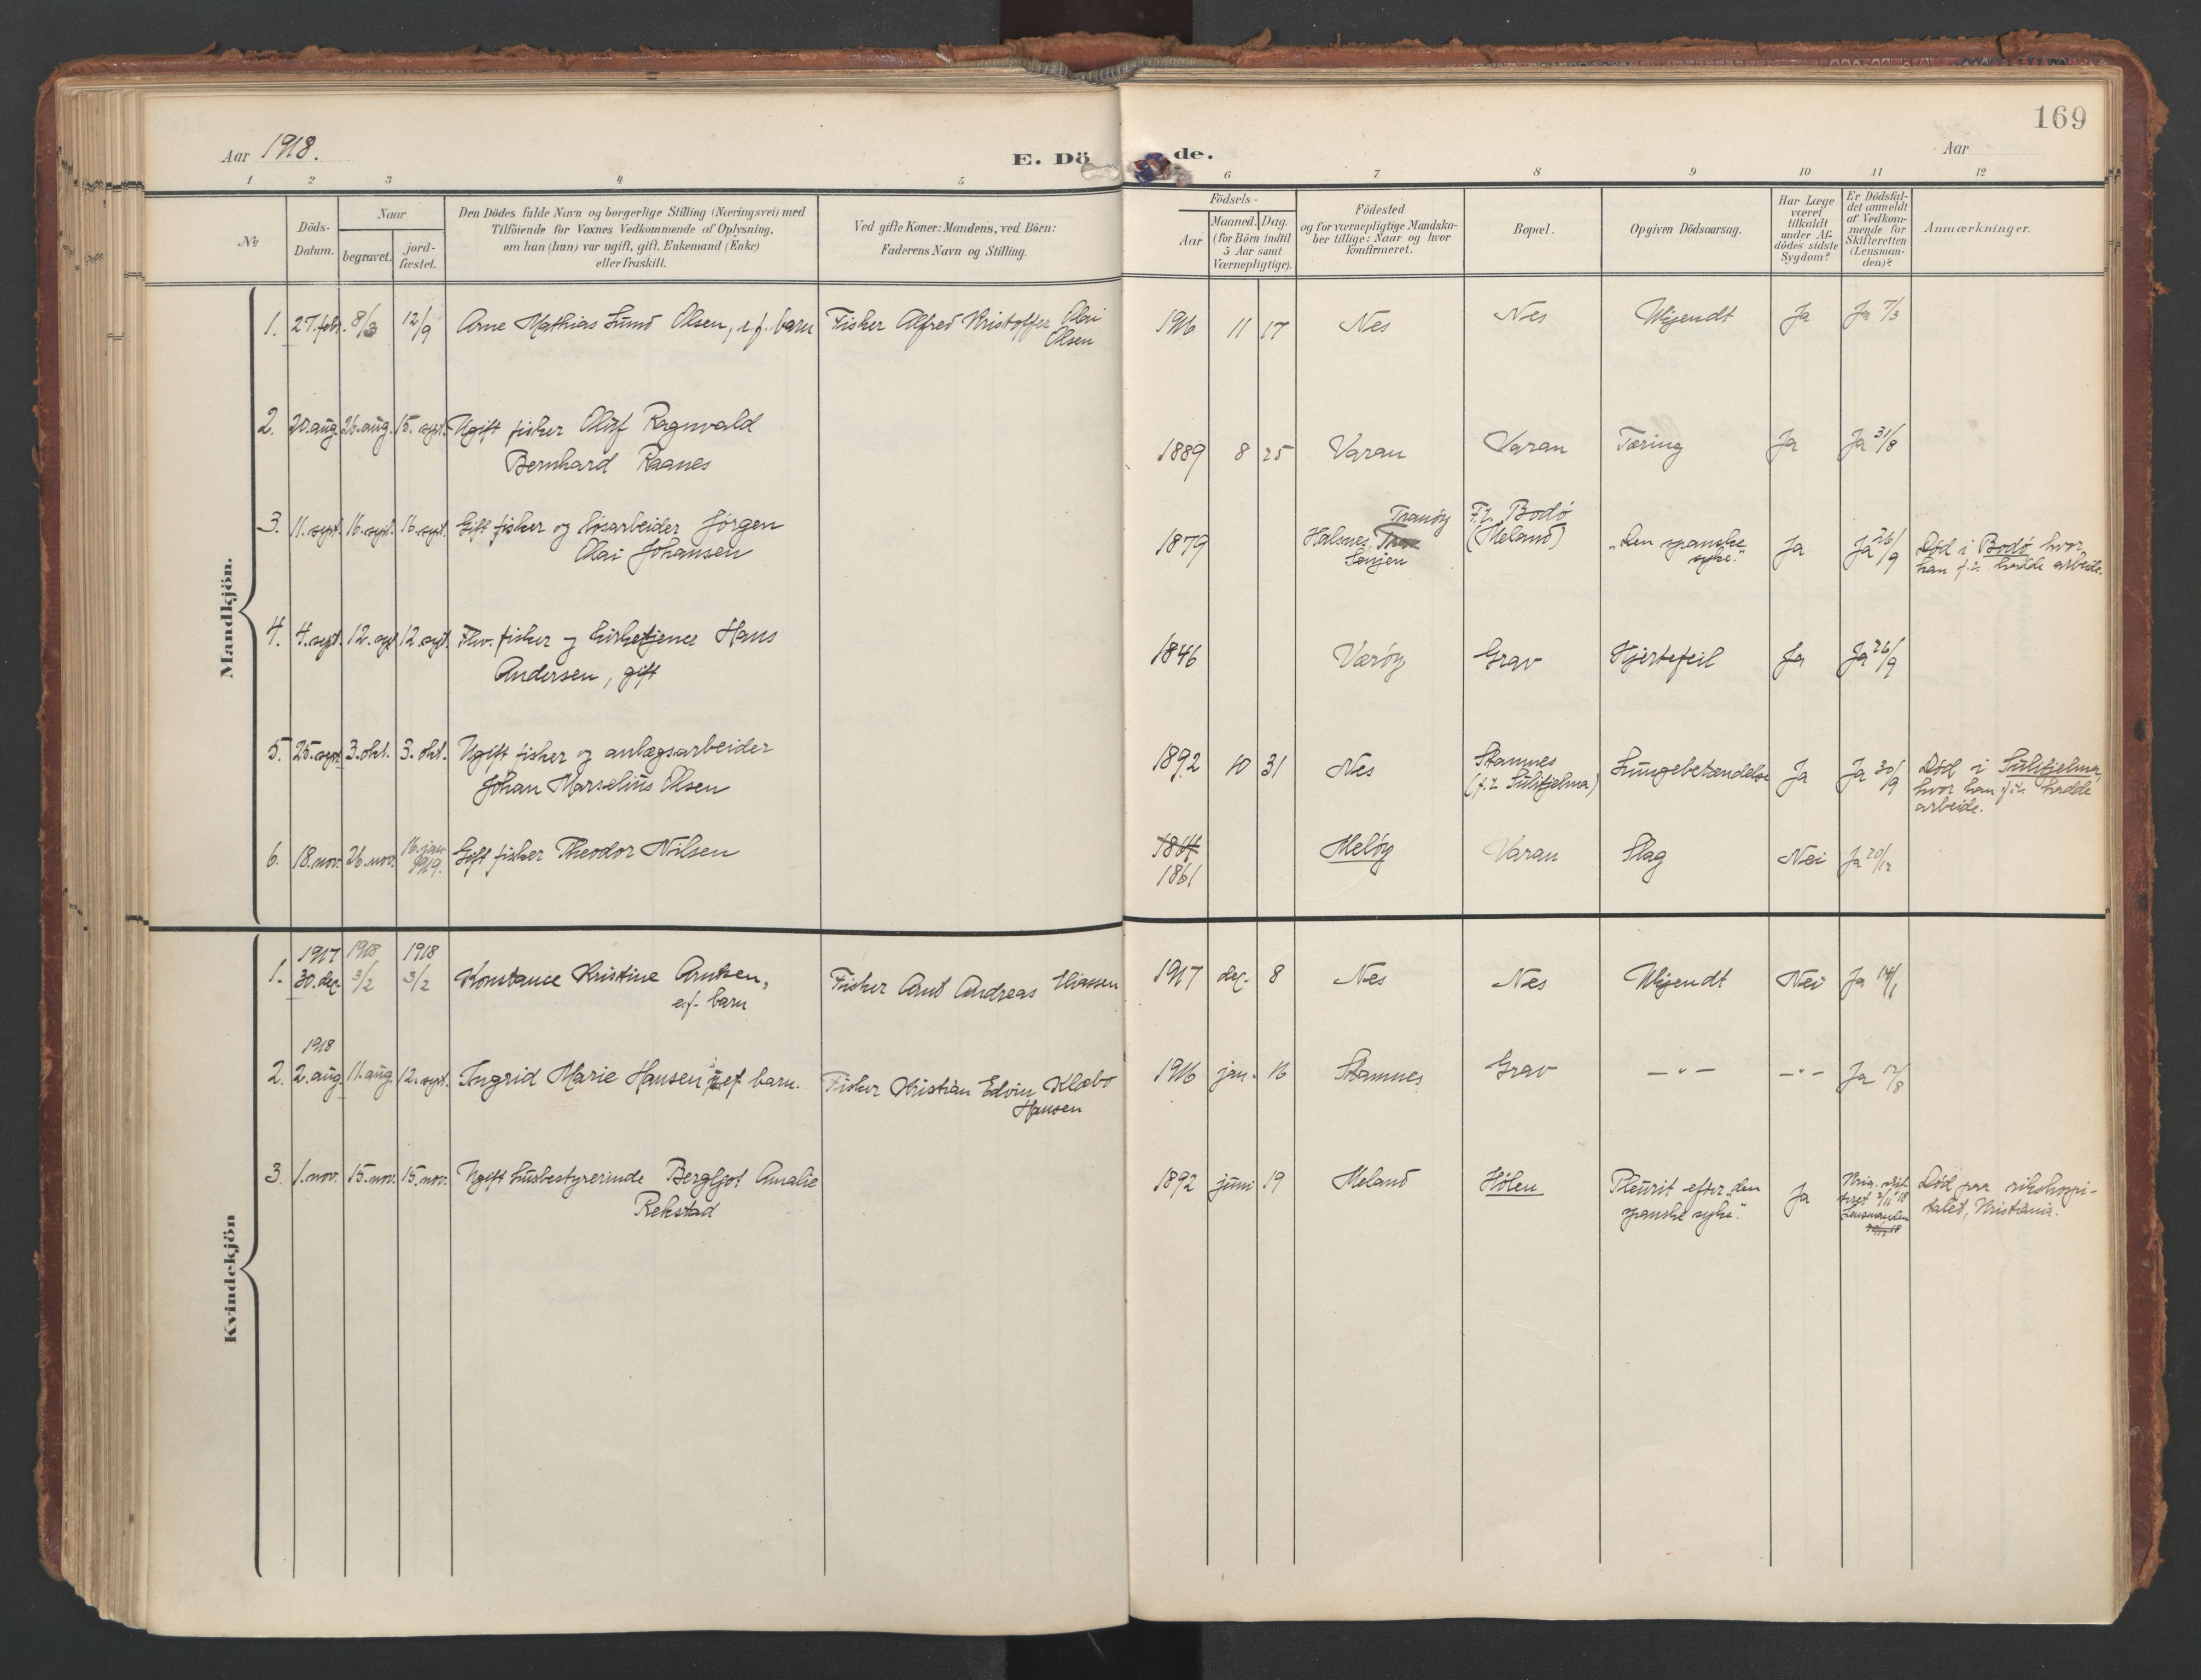 169
Aar 1918.
E. Dö de.
Aar
1 2 3 4 5 6 7 8 9 10 11 12
No
Döds-
Datum.
Naar
begravet.
jord-
fæstet.
Den Dödes fulde Navn og borgerlige Stilling (Næringsvei) med
Tilföiende for Voxnes Vedkommende af Oplysning,
om han (hun) var ugift, gift, Enkemand (Enke)
eller fraskilt.
Ved gifte Koner: Mandens, ved Börn:
Faderens Navn og Stilling.
Födsels-
Aar
Maaned. Dag.
(for Börn indtil
5 Aar samt
Værnepligtige).
Födested
og for værnepligtige Mandska-
ber tillige: Naar og hvor
konfirmeret.
Bopæl.
Opgiven Dödsaarsag.
Har Læge
været
tilkaldt
under Af-
dödes sidste
Sygdom?
Er Dödsfal-
det anmeldt
af Vedkom-
mende for
Skifteretten
(Lensman-
den)?
Anmærkninger.
Mandkjön.
1. 27. febr. 8/3 12/9 Arne Mathias Lund Olsen, e.f. barn Fisker Alfred Kristoffer Olai
Olsen
1916 11 17 Nes Nes Ukjendt Ja Ja 7/3
2. 20. aug. 26. aug. 15. sept. Ugift fisker Oluf Ragnvald
Bernhard Raanes
1889 8 25 Varan Varan Tæring Ja Ja 31/8
3. 11. sept. 16. sept. 16. sept. Gift fisker og løsarbeider Jørgen
Olai Johansen
1879 Halsnes, Tranöy
Senjen
F.t. Bodö
(Meland)
"Den spanske
syke."
Ja Ja 26/9
Död i Bodö hvor
han f.t. hadde arbeide.
4. 4. sept. 12. sept. 12. sept. Fhv. fisker og kirketjener Hans
Andersen, gift
1846 Væröy Grav Hjertefeil Ja Ja 26/9
5. 25. sept. 3. okt. 3. okt. Ugift fisker og anlægsarbeider
Johan Marselius Olsen
1892 10 31 Nes Stamnes
(f.t. Sulitjelma)
Lungebetændelse Ja Ja 30/9
Död i Sulitjelma,
hvor han f.t. hadde
arbeide.
6. 18. nov. 26. nov. 16. jan.
1919. Gift fisker Theodor Nilsen
1861 Melöy Varan Slag Nei Ja 20/12
Kvindekjön
1917 1918 1918
1. 30. dec. 3/2 3/2 Konstance Kristine Antsen,
e.f. barn
Fisker Ant Andreas Eliassen
1917 dec. 8 Nes Nes Ukjendt Nei Ja 14/1
1918
2. 2. aug. 11. aug. 12. sept. Ingrid Marie Hansen, uef barn. Fisker Kristian Edvin Klæbo
Hansen
1916 jan. 16 Stamnes Grav — " — — " — Ja 12/8
3. 1. nov. 15. nov. 15. nov. Ugift husbestyrerinde Bergljot Amalie
Rekstad
1892 juni 19 Meland Hölen Pleurit efter "den
spanske syke".
Ja
Kria. skift
Lensmanden
Död paa rikshospi-
talet, Kristiania.